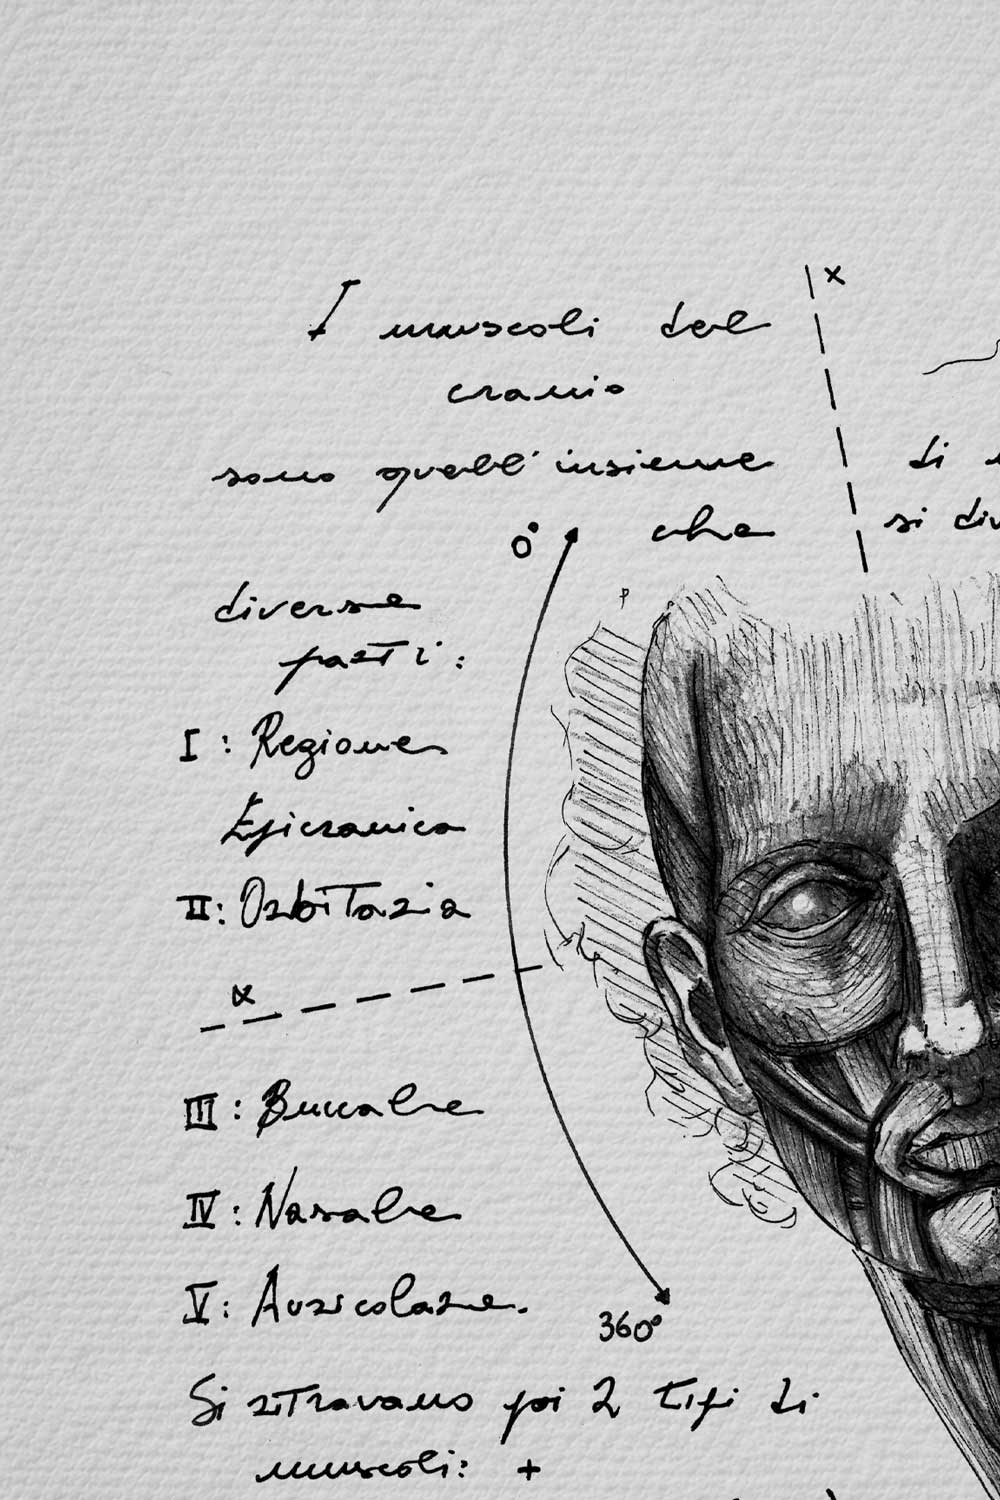 I muscoli del x
cranio
sono quell'insieme di
che si div
0°
diverse
parti:
I: Regione
Epicranica
II: Orbitaria
α
III: Buccale
IV: Nasale
V: Auricolare.
360°
Si ritravano poi 2 tipi di
muscoli: +